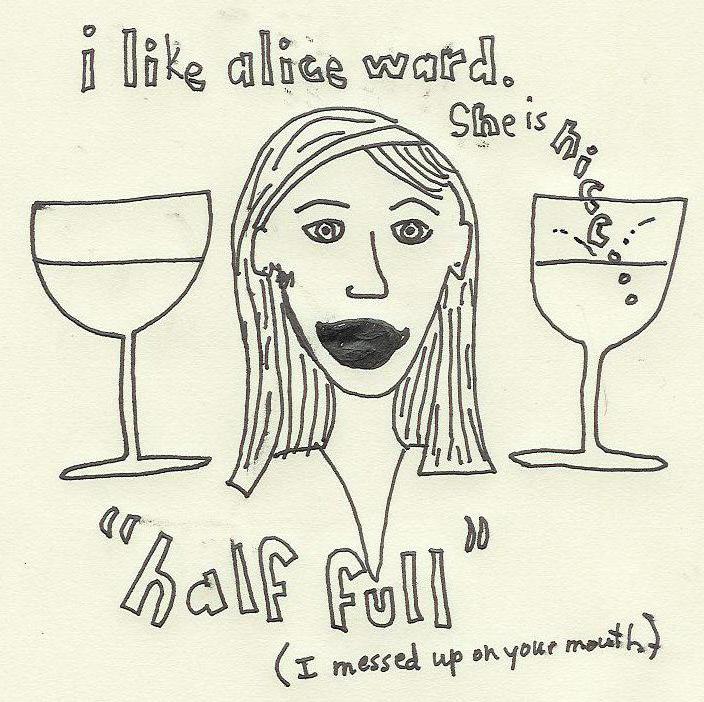 i like alice ward.
She is
"half full"
(I messed up on your mouth)